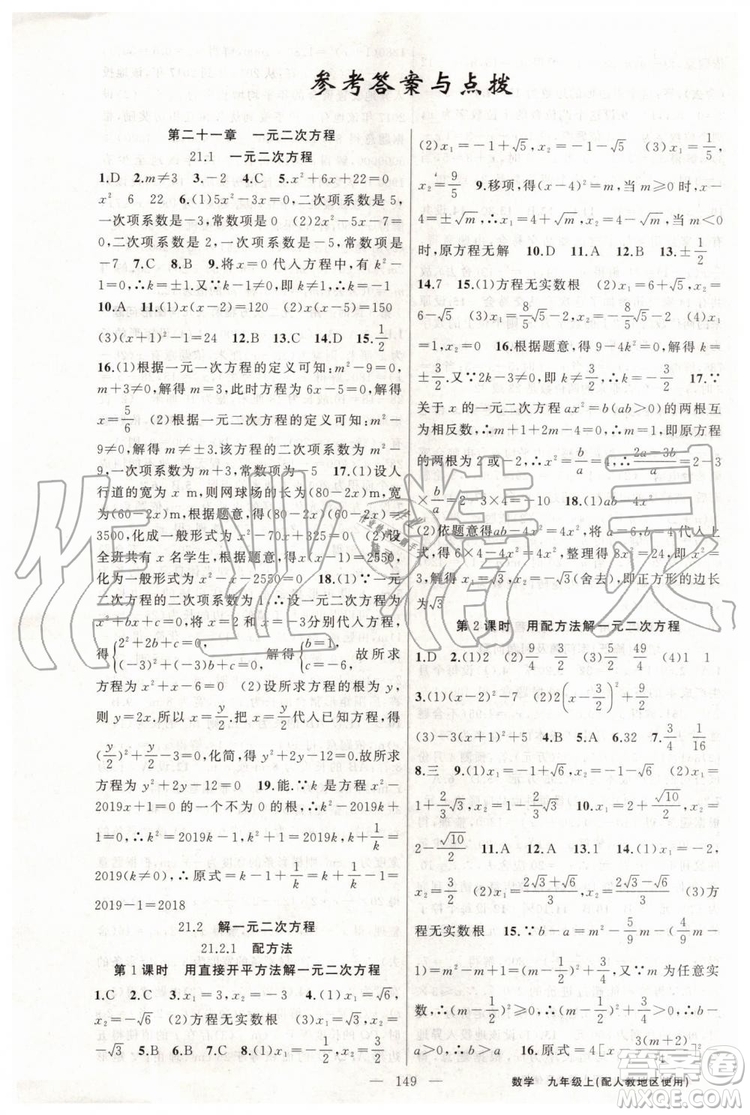 参考答案与点拨
第二十一章　一元二次方程
21.1　一元二次方程
1.D　2.m≠3　3.－2　4.C　5.x²＋6x＋22＝0
x²　6　22　6.(1)5x²－3x＝0,二次项系数是5,
一次项系数是－3,常数项是0　(2)2x²－5x－7＝
0,二次项系数是2,一次项系数是－5,常数项是
－7　7.C　8.B　9.将x＝0代入方程,有k²－
1＝0,∴k＝±1,又∵k－1≠0,∴k≠1,∴k＝－1
10.A　11.(1)x(x－2)＝120　(2)x(x－5)＝150
(3)(x＋1)²－1＝24　12.B　13.D　14.2　15.1/2
16.(1)根据一元一次方程的定义可知:m²－9＝0,
m＋3≠0,解得m＝3,此时方程为6x－5＝0,解得
x＝5/6　(2)根据一元二次方程的定义可知:m²－
9≠0,解得m≠±3.该方程的二次项系数为m²－
9,一次项系数为m＋3,常数项为－5　17.(1)设人
行道的宽为x m,则网球场的长为(80－2x)m,宽
为(60－2x)m,根据题意,得(80－2x)(60－2x)＝
3500,化成一般形式为x²－70x＋325＝0　(2)设
全班共有x名学生,根据题意,得x(x－1)＝2550,
化为一般形式为x²－x－2550＝0　18.(1)∵一元
二次方程的二次项系数为1,∴设一元二次方程为
x²＋bx＋c＝0,∵一元二次方程的两个根是2和－3,
∴{2²＋2b＋c＝0, (－3)²－3b＋c＝0, 解得{b＝1, c＝－6. 故所求
方程为x²＋x－6＝0　(2)设所求方程的根为y,
则y＝2x.所以x＝y/2.把x＝y/2代入已知方程,得
(y/2)²＋y/2－3＝0,化简,得y²＋2y－12＝0.故所求
方程为y²＋2y－12＝0　19.能.∵k是方程x²－
2019x＋1＝0的一个不为0的根,∴k²－2019k＋
1＝0,∴k²＝2019k－1,k²＋1＝2019k,k＋1/k＝
2019(k≠0),∴原式＝2019k－1－2019k＋k＋1/k＝
2019－1＝2018
21.2　解一元二次方程
21.2.1　配方法
第1课时　用直接开平方法解一元二次方程
1.C　2.C　3.(1)x₁＝3,x₂＝－3　(2)x₁＝√6,
x₂＝－√6　(2)方程无实数根　(3)x₁＝√3,x₂＝
－√3　4.D　5.D　6.B　7.m≥1　8.(1)x₁＝5,x₂＝－1
(2)x₁＝－1＋√5,x₂＝－1－√5　(3)x₁＝1/5,
x₂＝9/5　9.移项,得(x－4)²＝m,当m＞0时,x－
4＝±√m,∴x₁＝4＋√m,x₂＝4－√m;当m＝0
时,(x－4)²＝0,∴x₁＝x₂＝4;当m＜0
时,原方程无解　10.D　11.A　12.D　13.±1/2
14.7　15.(1)方程无实数根　(2)x₁＝6＋√5,x₂＝
6－√5　(3)x₁＝8/5√5－2,x₂＝－8/5√5－2　(4)x₁＝
1,x₂＝　16.根据题意,得9－4k²＝8,解得k＝
关于x的一元二次方程ax²＝b(ab＞0)的两根互
为相反数,∴m＋1＋2m－4＝0,∴m＝1,∴方程
的两根为2或－2,∴x²＝b/a＝4,∴原式＝2－3
×b/a＝2－3×4＝－10　18.(1)ab－4x²
(2)依题意得ab－4x²＝4x²,将a＝6,b＝4代入上
式,得6×4－4x²＝4x²,整理得8x²＝24,即x²＝
3,解得x₁＝√3,x₂＝－√3(舍去),即正方形的边长
为√3
第2课时　用配方法解一元二次方程
1.D　2.(1)1　1　(2)9/4　3/2　(3)25/4　5/2　49/4　(4)1　1
3.(1)(x－2)²－7　(2)2(x－3/2)²＋1/2
(3)－(x－1)²－2　4.B　5.A　6.A　7.3/4　1/16
8.三
方
程无实数根
a＞0,∴该方程有实数根　16.原式＝4[x－3(m＋2)
— 149 —
数学　九年级上(配人教地区使用)
作业精灵